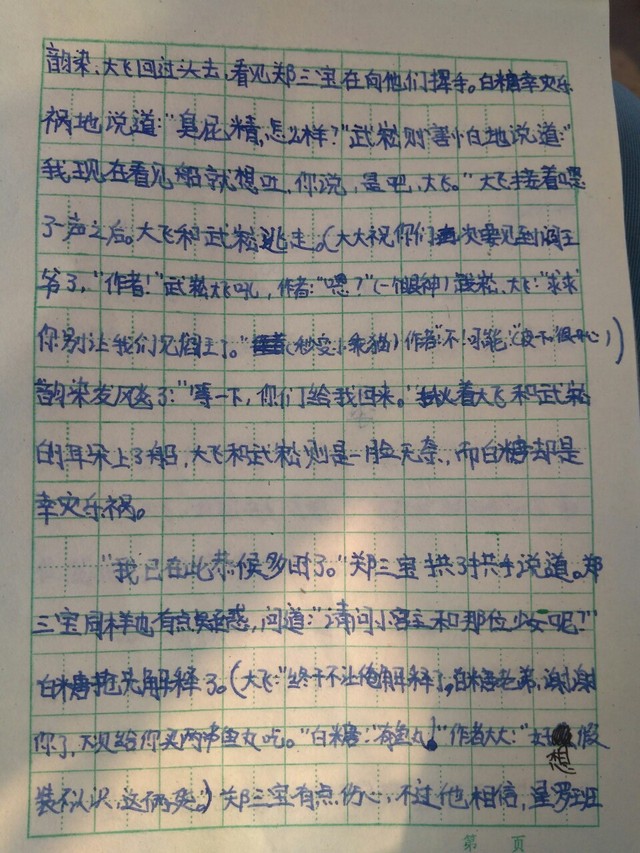 韵染、大飞回过头去,看见郑三宝在向他们挥手。白糖幸灾乐
祸地说道:"臭屁精,怎么样?"武崧则害怕地说道:"
我现在看见船就想吐,你说,是吧,大飞。"大飞接着嗯
了一声之后。大飞和武崧逃走。(大大祝你们次要见到阎王
爷了。"作者!"武崧大飞吼,作者:"嗯?"(一个眼神)武崧、大飞:"求求
你别让我们见阎王了。"(秒变小乖猫)作者:"不!可能!"(皮下很开心))
韵染发风飚了:"等一下,你们给我回来。"揪着大飞和武崧
的耳朵上了船,大飞和武崧则是一脸无奈,而白糖却是
幸灾乐祸。
"我已在此恭候多时了。"郑三宝拱了拱手说道。郑
三宝同样也有点疑惑,问道:"请问小宫主和那位少女呢?"
白糖抢先解释了。(大飞:"终于不让俺解释了,白糖老弟,谢谢
你了,下次见给你买两串鱼丸吃。"白糖:"有鱼丸!"作者大大:"好想假
装不认识,这俩货。)郑三宝有点伤心,不过他相信,星罗班
第 页